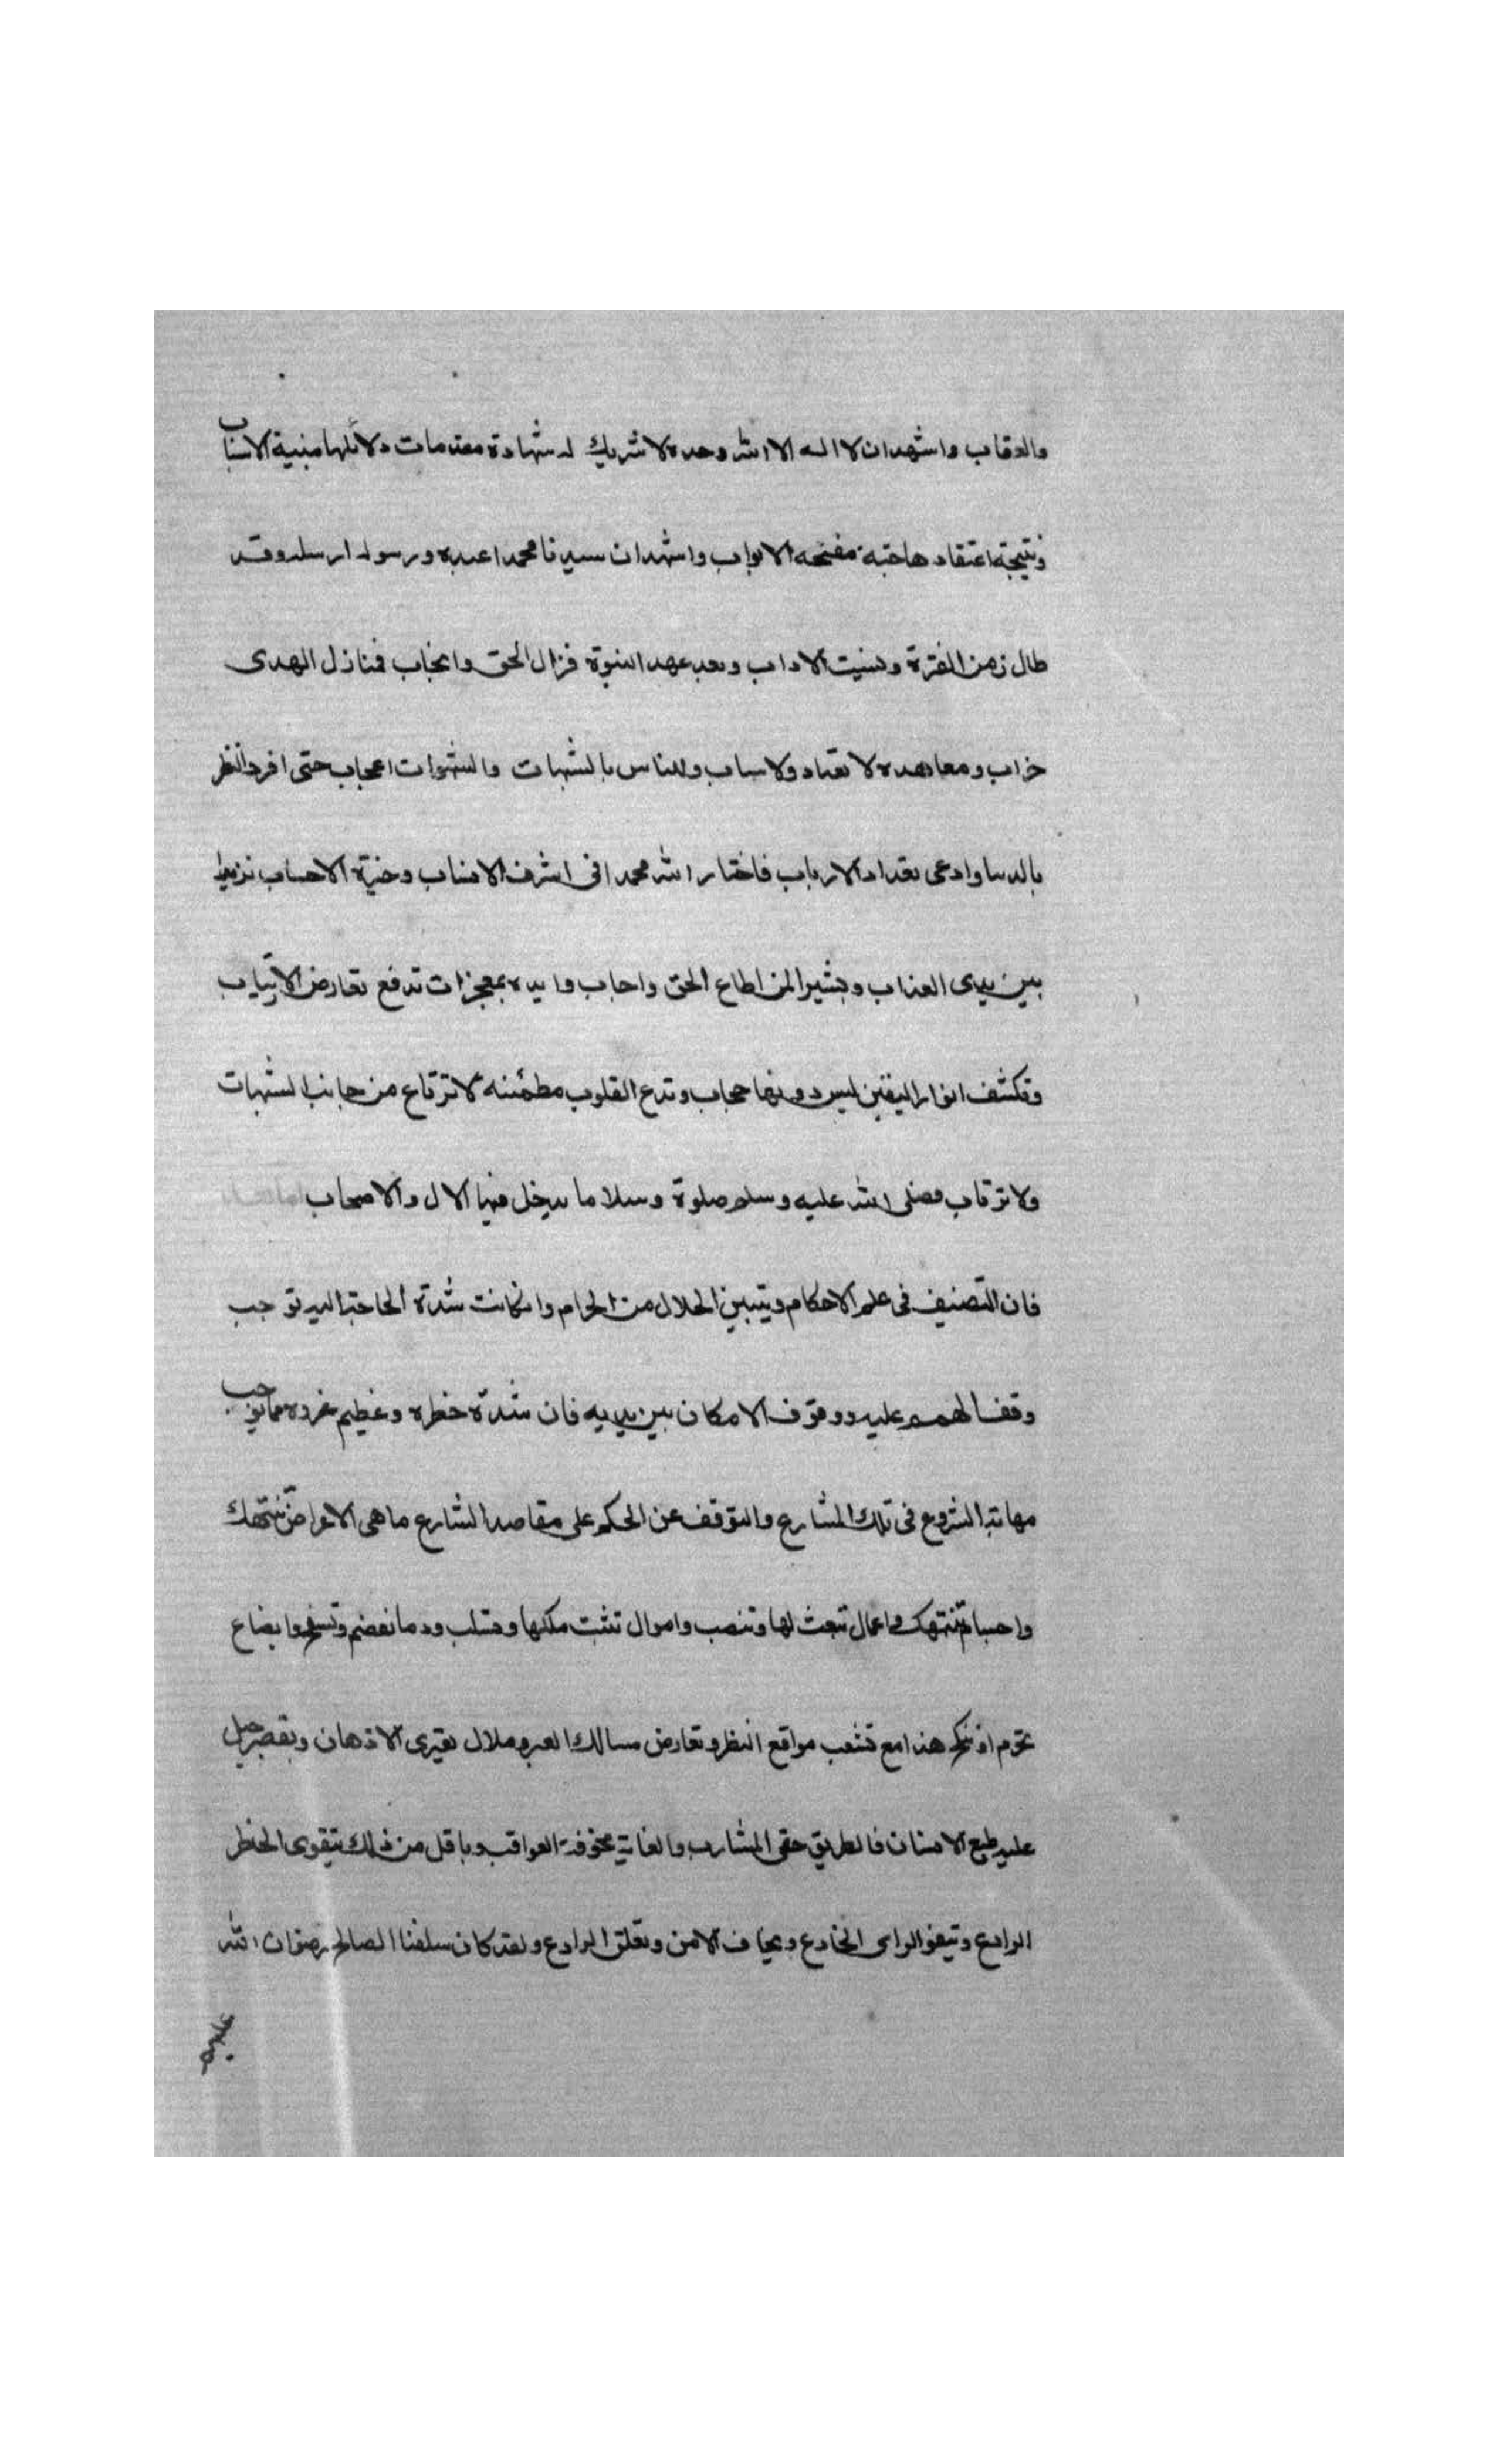 والعقاب واشهدان لا اله الا الله وحده لا شريك له شهادة مقدمات دلائلها مبنية الاسباب
ونتيجة اعتقادها جنة مفتحه الابواب واشهدان سيدنا محمدا عبده ورسوله ارسله وقد
طال زمن الفترة ونسيت الاداب وبعد عهد النبوة فزال الحق وانجاب فمنازل الهدى
خراب ومعاهده لا تعتاد ولا وللناس بالشبهات والشهوات اعجاب حتى افرد النظر
بالدنيا وادعى تعداد الارباب فاختار الله محمدا فى اشرف الانساب وخيرة الاحساب نزيرا
بين يدى العذاب وبشيرا لمن اطاع الحق واجاب وايده بمعجزات تدفع تعارض الارتياب
وتكشف انوار اليقين ليس دونها حجاب وتدع القلوب مطمئنه لا ترتاع من جانب الشبهات
ولا ترتاب فصلى الله عليه وسلم صلوة وسلاما يدخل فيها الال والاصحاب
فان التصنيف فى علم الاحكام وتبيين الحلال من الحرام وان كانت شدة الحاجة اليه توجب
وقف الهمم عليه ووقوف الامكان بين يديه فان شدة خطره وعظيم غرره مما توجب
مهابة الشروع فى تلك المشارع والتوقف عن الحكم على مقاصد الشارع ما هى الا اعراض تنتهك
واجسام تنتهك واعمال تتعب لها وتنصب واموال تثبت ملكها وتسلب ودما تعصم وتسفح وابضاع
تحرم او تنكح هذا مع تشعب مواقع النظر وتعارض مسالك العبر وملال يعترى الاذهان وتقصير جبل
عليه طبع الانسان فالطريق خفى المشارب والغاية مخوفة العواقب وباقل من ذلك يتقوى الخطر
الرادع وتيفو الراى الخادع ويخاف الامن ويقلق الرادع ولقد كان سلفنا الصالح رضوان الله
عليهم